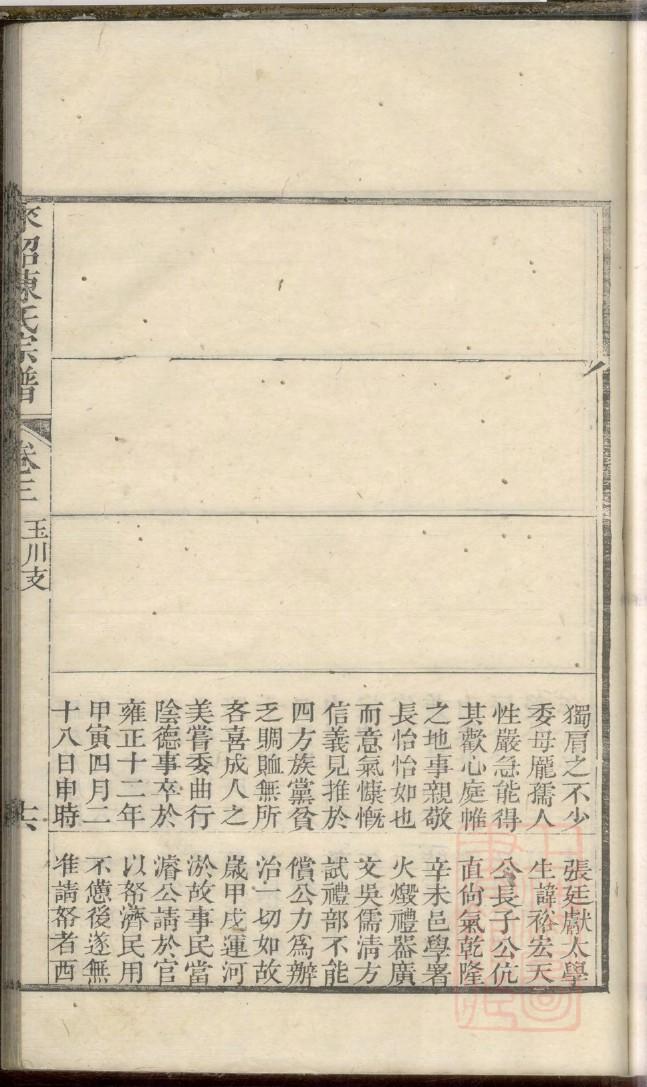 獨肩之不少
委母龎孺人
性嚴急能得
其歡心庭帷
之地事親敬
長怡怡如也
而意氣慷慨
信義見推於
四方族黨貧
乏賙賉無所
吝喜成人之
美嘗委曲行
陰德事卒於
雍正十二年
甲寅四月二
十八日申時
張廷獻太學
生諱裕宏天
公長子公伉
直尙氣乾隆
辛未邑學署
火燬禮器廣
文吳儒淸方
試禮部不能
償公力爲辦
治一切如故
歲甲戌運河
淤故事民當
濬公請於官
以帑濟民用
不憊後遂無
准請帑者西
陳氏宗譜
卷三
玉川支
六